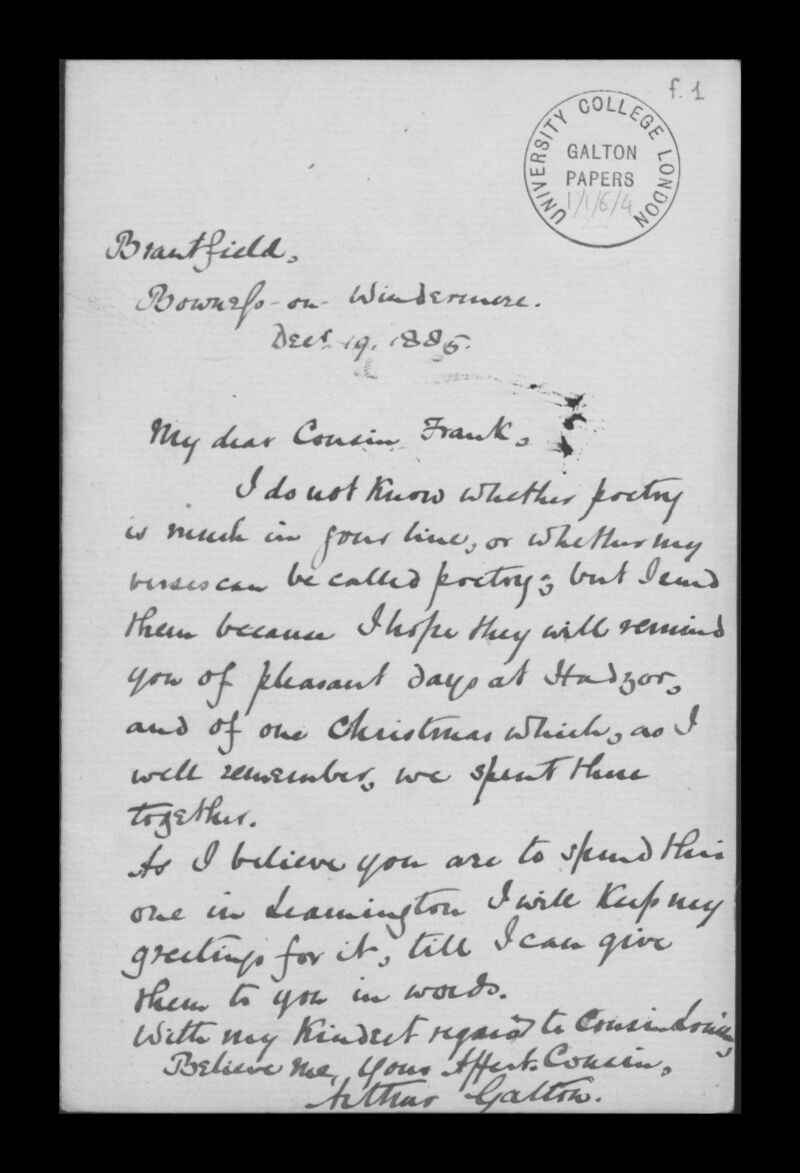 f. 1
UNIVERSITY COLLEGE LONDON
GALTON
PAPERS
1/1/6/4
Brantfield,
Bowness-on-Windermere.
Decr. 19. 1885.
My dear Cousin Frank,
I do not know whether poetry
is much in your line, or whether my
verses can be called poetry; but I send
them because I hope they will remind
you of pleasant days at Hadzor,
and of one Christmas which, as I
well remember, we spent there
together.
As I believe you are to spend this
one in Leamington I will keep my
greetings for it, till I can give
them to you in words.
With my kindest regards to Cousin Louisa,
Believe me, your Affect. Cousin,
Arthur Galton.